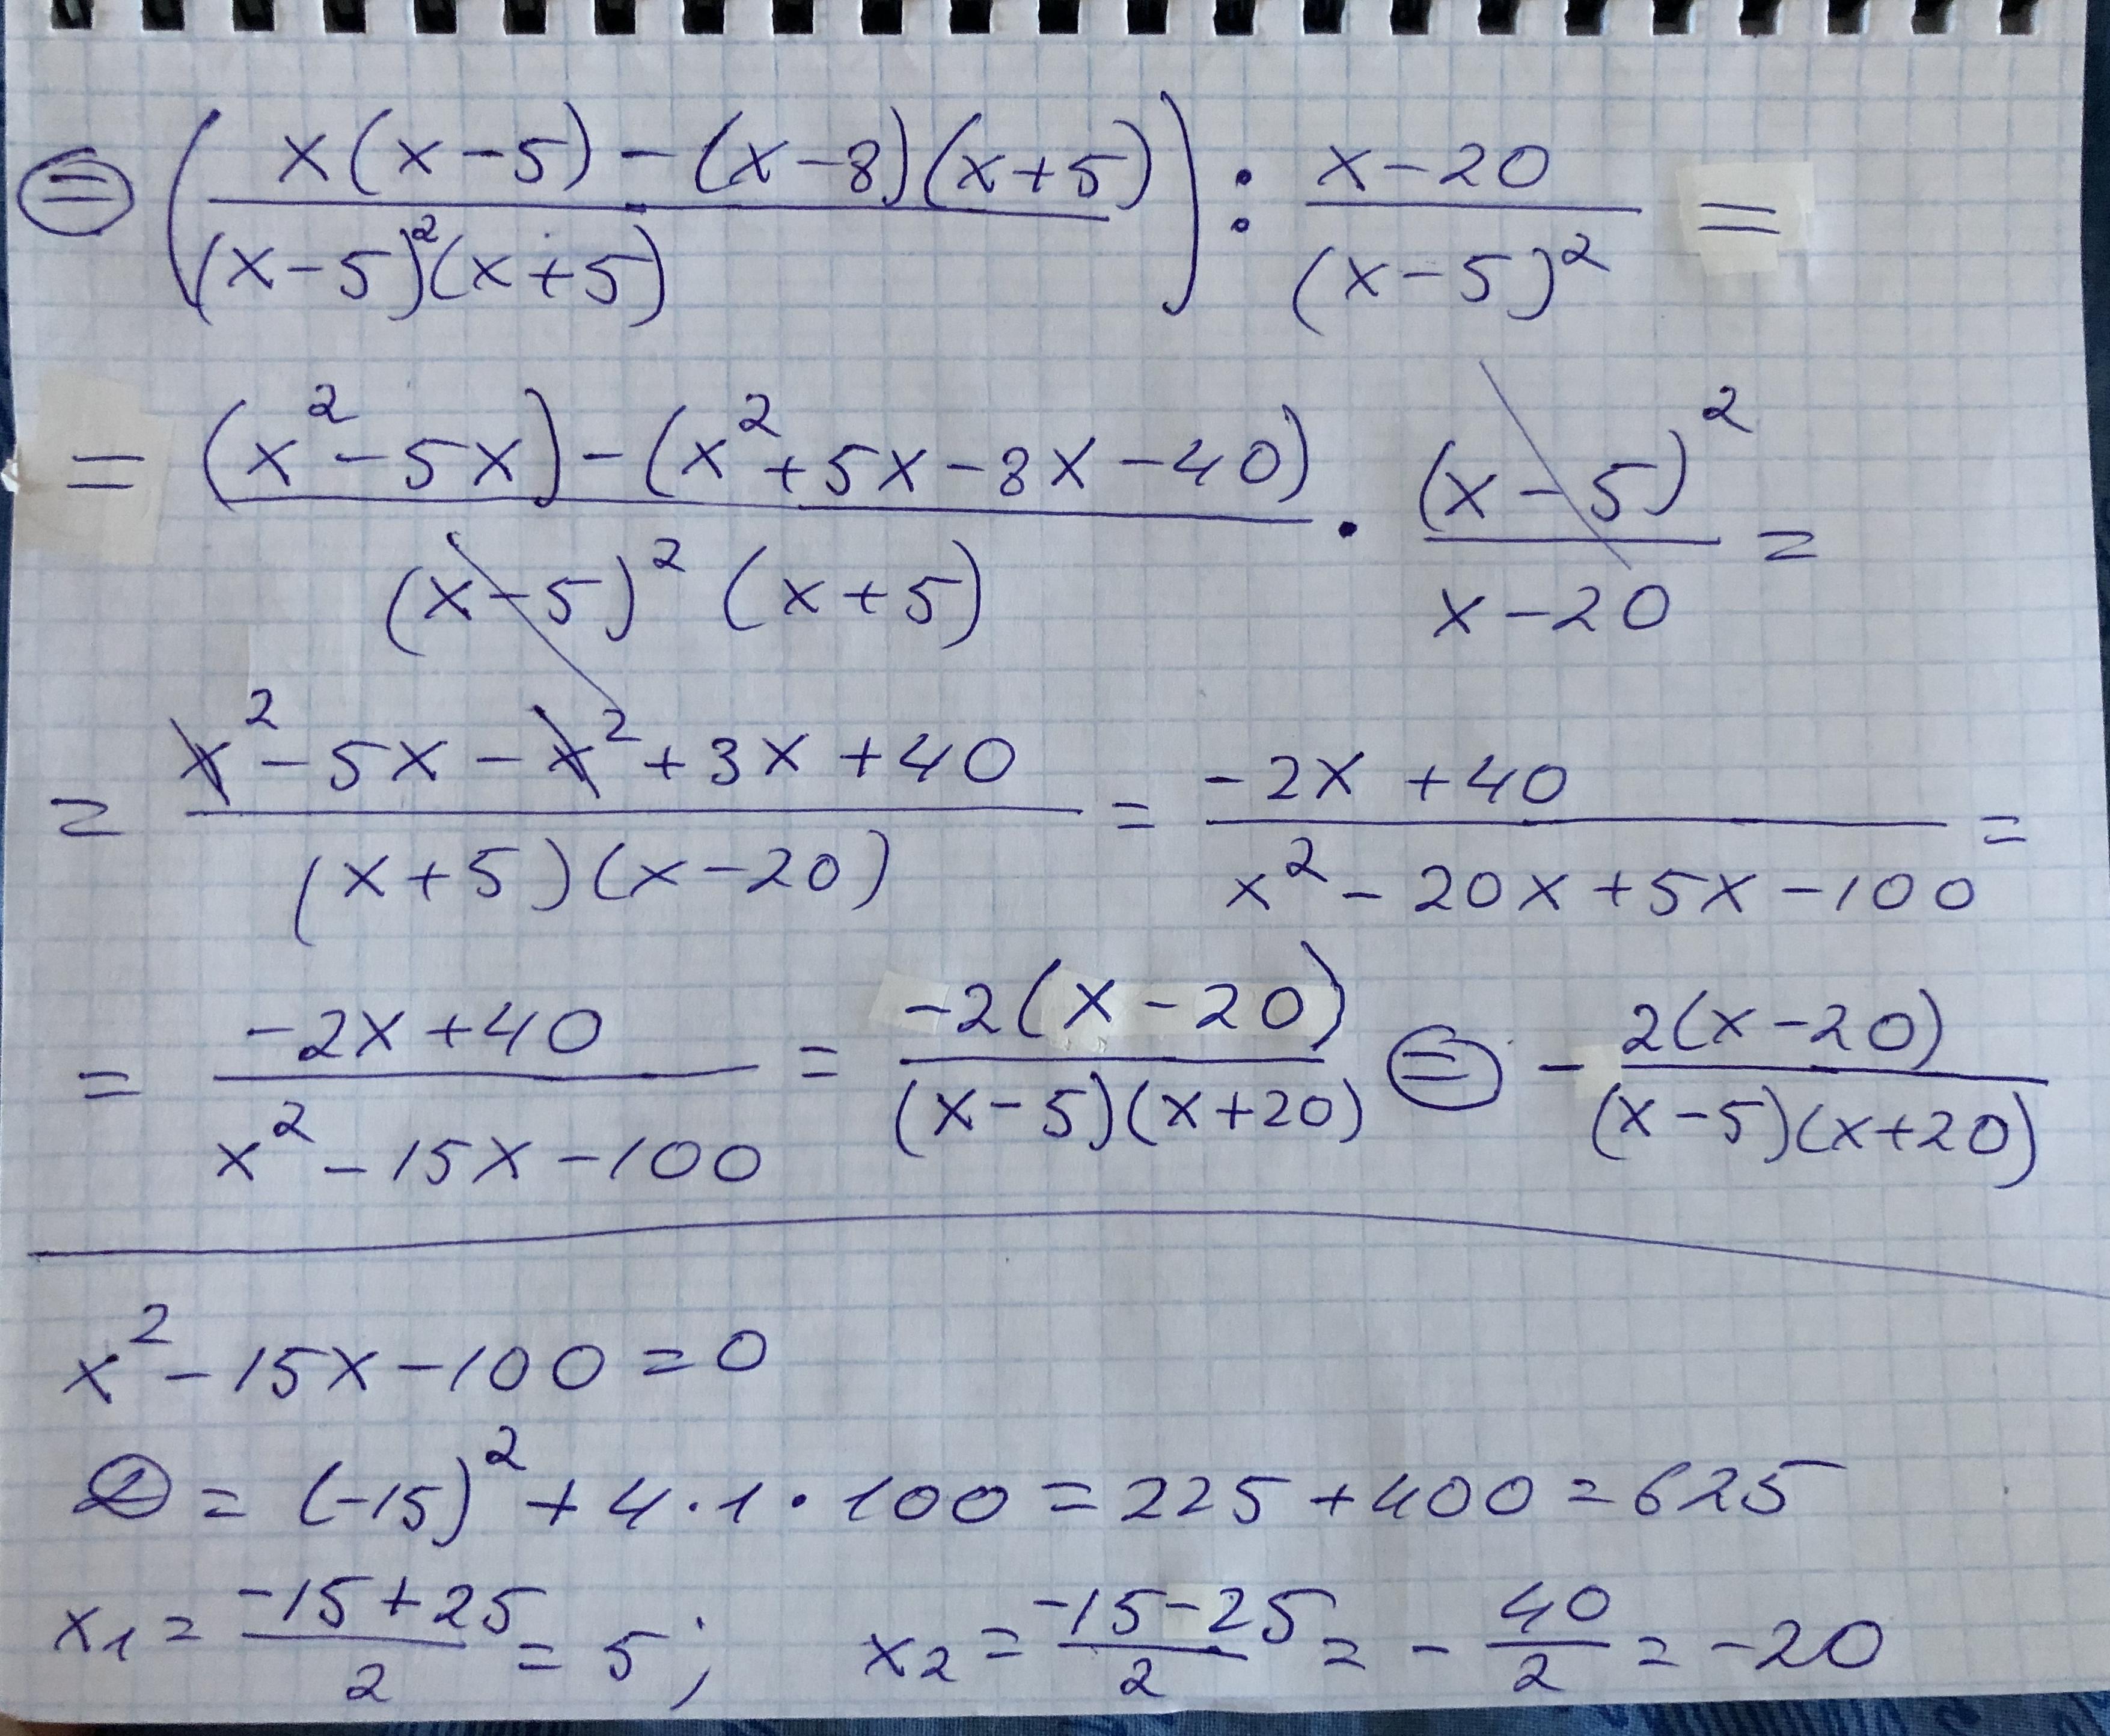 = (x(x-5)-(x-8)(x+5))/((x-5)²(x+5)) : (x-20)/(x-5)² =
= ((x²-5x)-(x²+5x-8x-40))/((x-5)²(x+5)) · (x-5)²/(x-20) =
= (x²-5x-x²+3x+40)/((x+5)(x-20)) = (-2x+40)/(x²-20x+5x-100) =
= (-2x+40)/(x²-15x-100) = -2(x-20)/((x-5)(x+20)) = - 2(x-20)/((x-5)(x+20))
x²-15x-100=0
D = (-15)²+4·1·100=225+400=625
x₁ = (-15+25)/2 = 5; x₂ = (-15-25)/2 = - 40/2 = -20